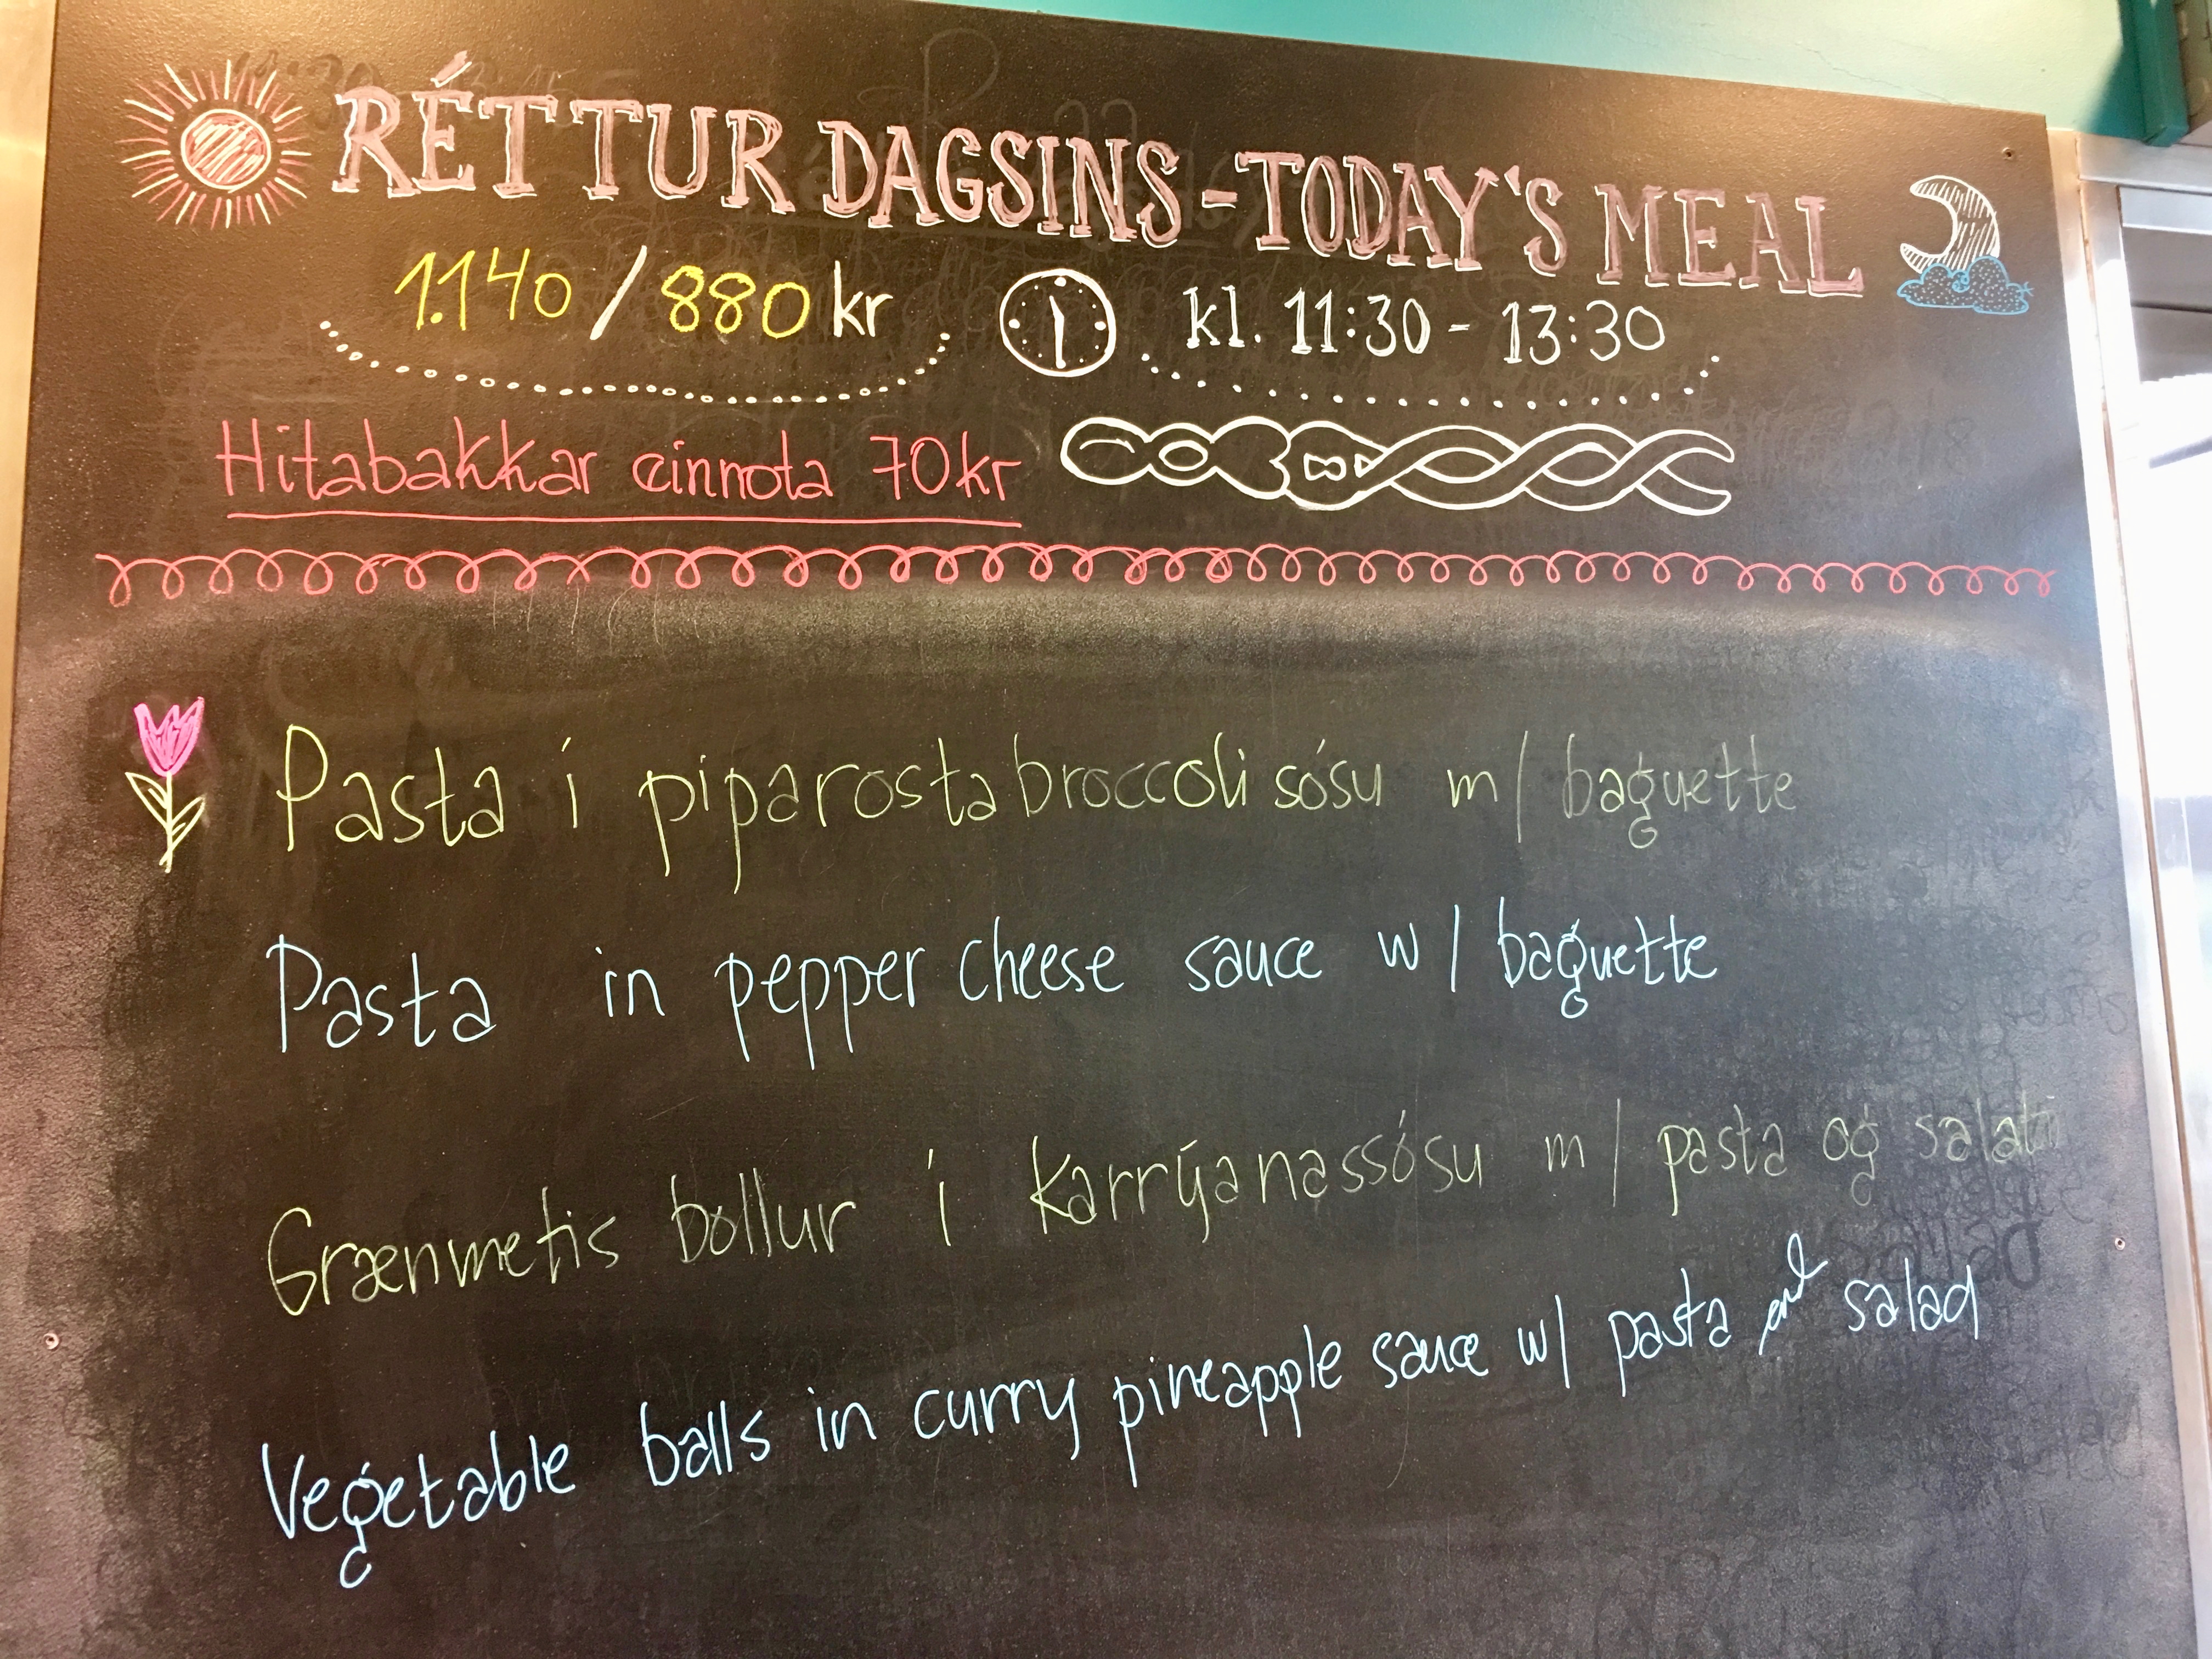 RÉTTUR DAGSINS - TODAY'S MEAL
1.140 / 880 kr
kl. 11:30 - 13:30
Hitabakkar einnota 70kr
Pasta í piparostabroccoli sósu m/ baguette
Pasta in pepper cheese sauce w/ baguette
Grænmetis bollur í karrýanassósu m/ pasta og salati
Vegetable balls in curry pineapple sauce w/ pasta and salad